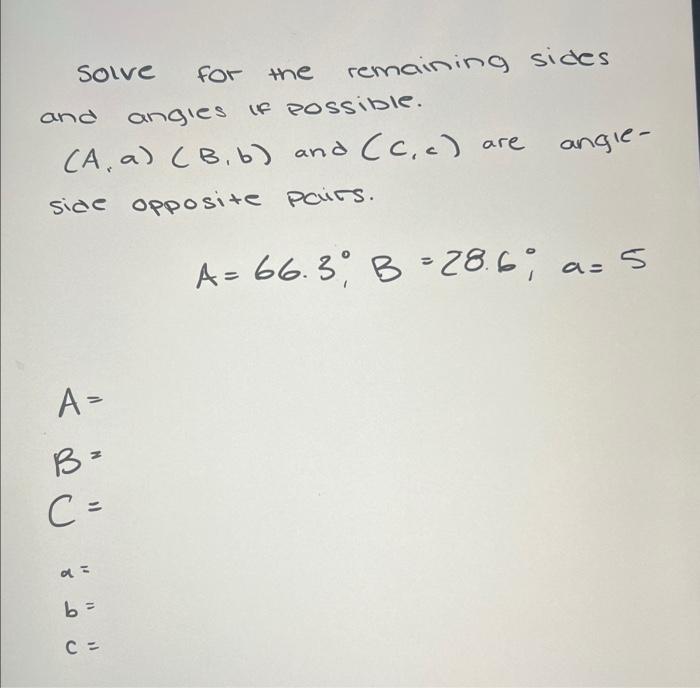 Solve for the remaining sides
and angles if possible.
(A, a) (B, b) and (C, c) are angle-
side opposite pairs.
A = 66.3°, B = 28.6°, a = 5
A =
B =
C =
a =
b =
c =